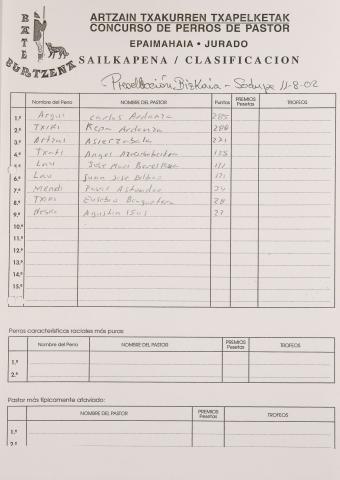 BATE
BURTZENA
ARTZAIN TXAKURREN TXAPELKETAK
CONCURSO DE PERROS DE PASTOR
EPAIMAHAIA • JURADO
SAILKAPENA / CLASIFICACION
Preselección Bizkaia - Sodupe 11-8-02
Nombre del Perro NOMBRE DEL PASTOR Puntos PREMIOS Pesetas TROFEOS
1.º Argui Carlos Ardanza 285
2.º Txiki Kepa Ardanza 280
3.º Artzai Asier Zabala 221
4.º Angel 175
5.º Lau Jose Mari
6.º Lau Juan Jose Bilbao 121
7.º Mendi
8.º Txiki Eusebio 28
9.º Negro Agustin Isusi 27
10.º
11.º
12.º
13.º
14.º
15.º
Perros características raciales más puras:
Nombre del Perro NOMBRE DEL PASTOR PREMIOS Pesetas TROFEOS
1.º
2.º
Pastor más típicamente ataviado:
NOMBRE DEL PASTOR PREMIOS Pesetas TROFEOS
1.º
2.º